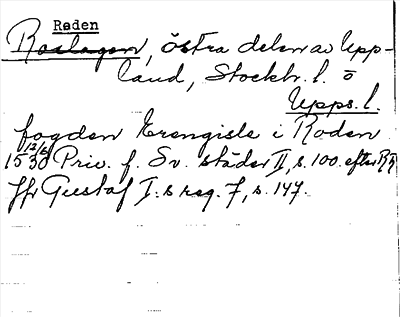 Røden
Roslagen, östra delen av Upp-
land, Stockh. l. o
Upps. l.
fogden Erengisle i Roden
12/6
1530 Priv. f. Sv. städer II, s. 100. efter RR
jfr Gustaf I:s reg. 7, s. 147.